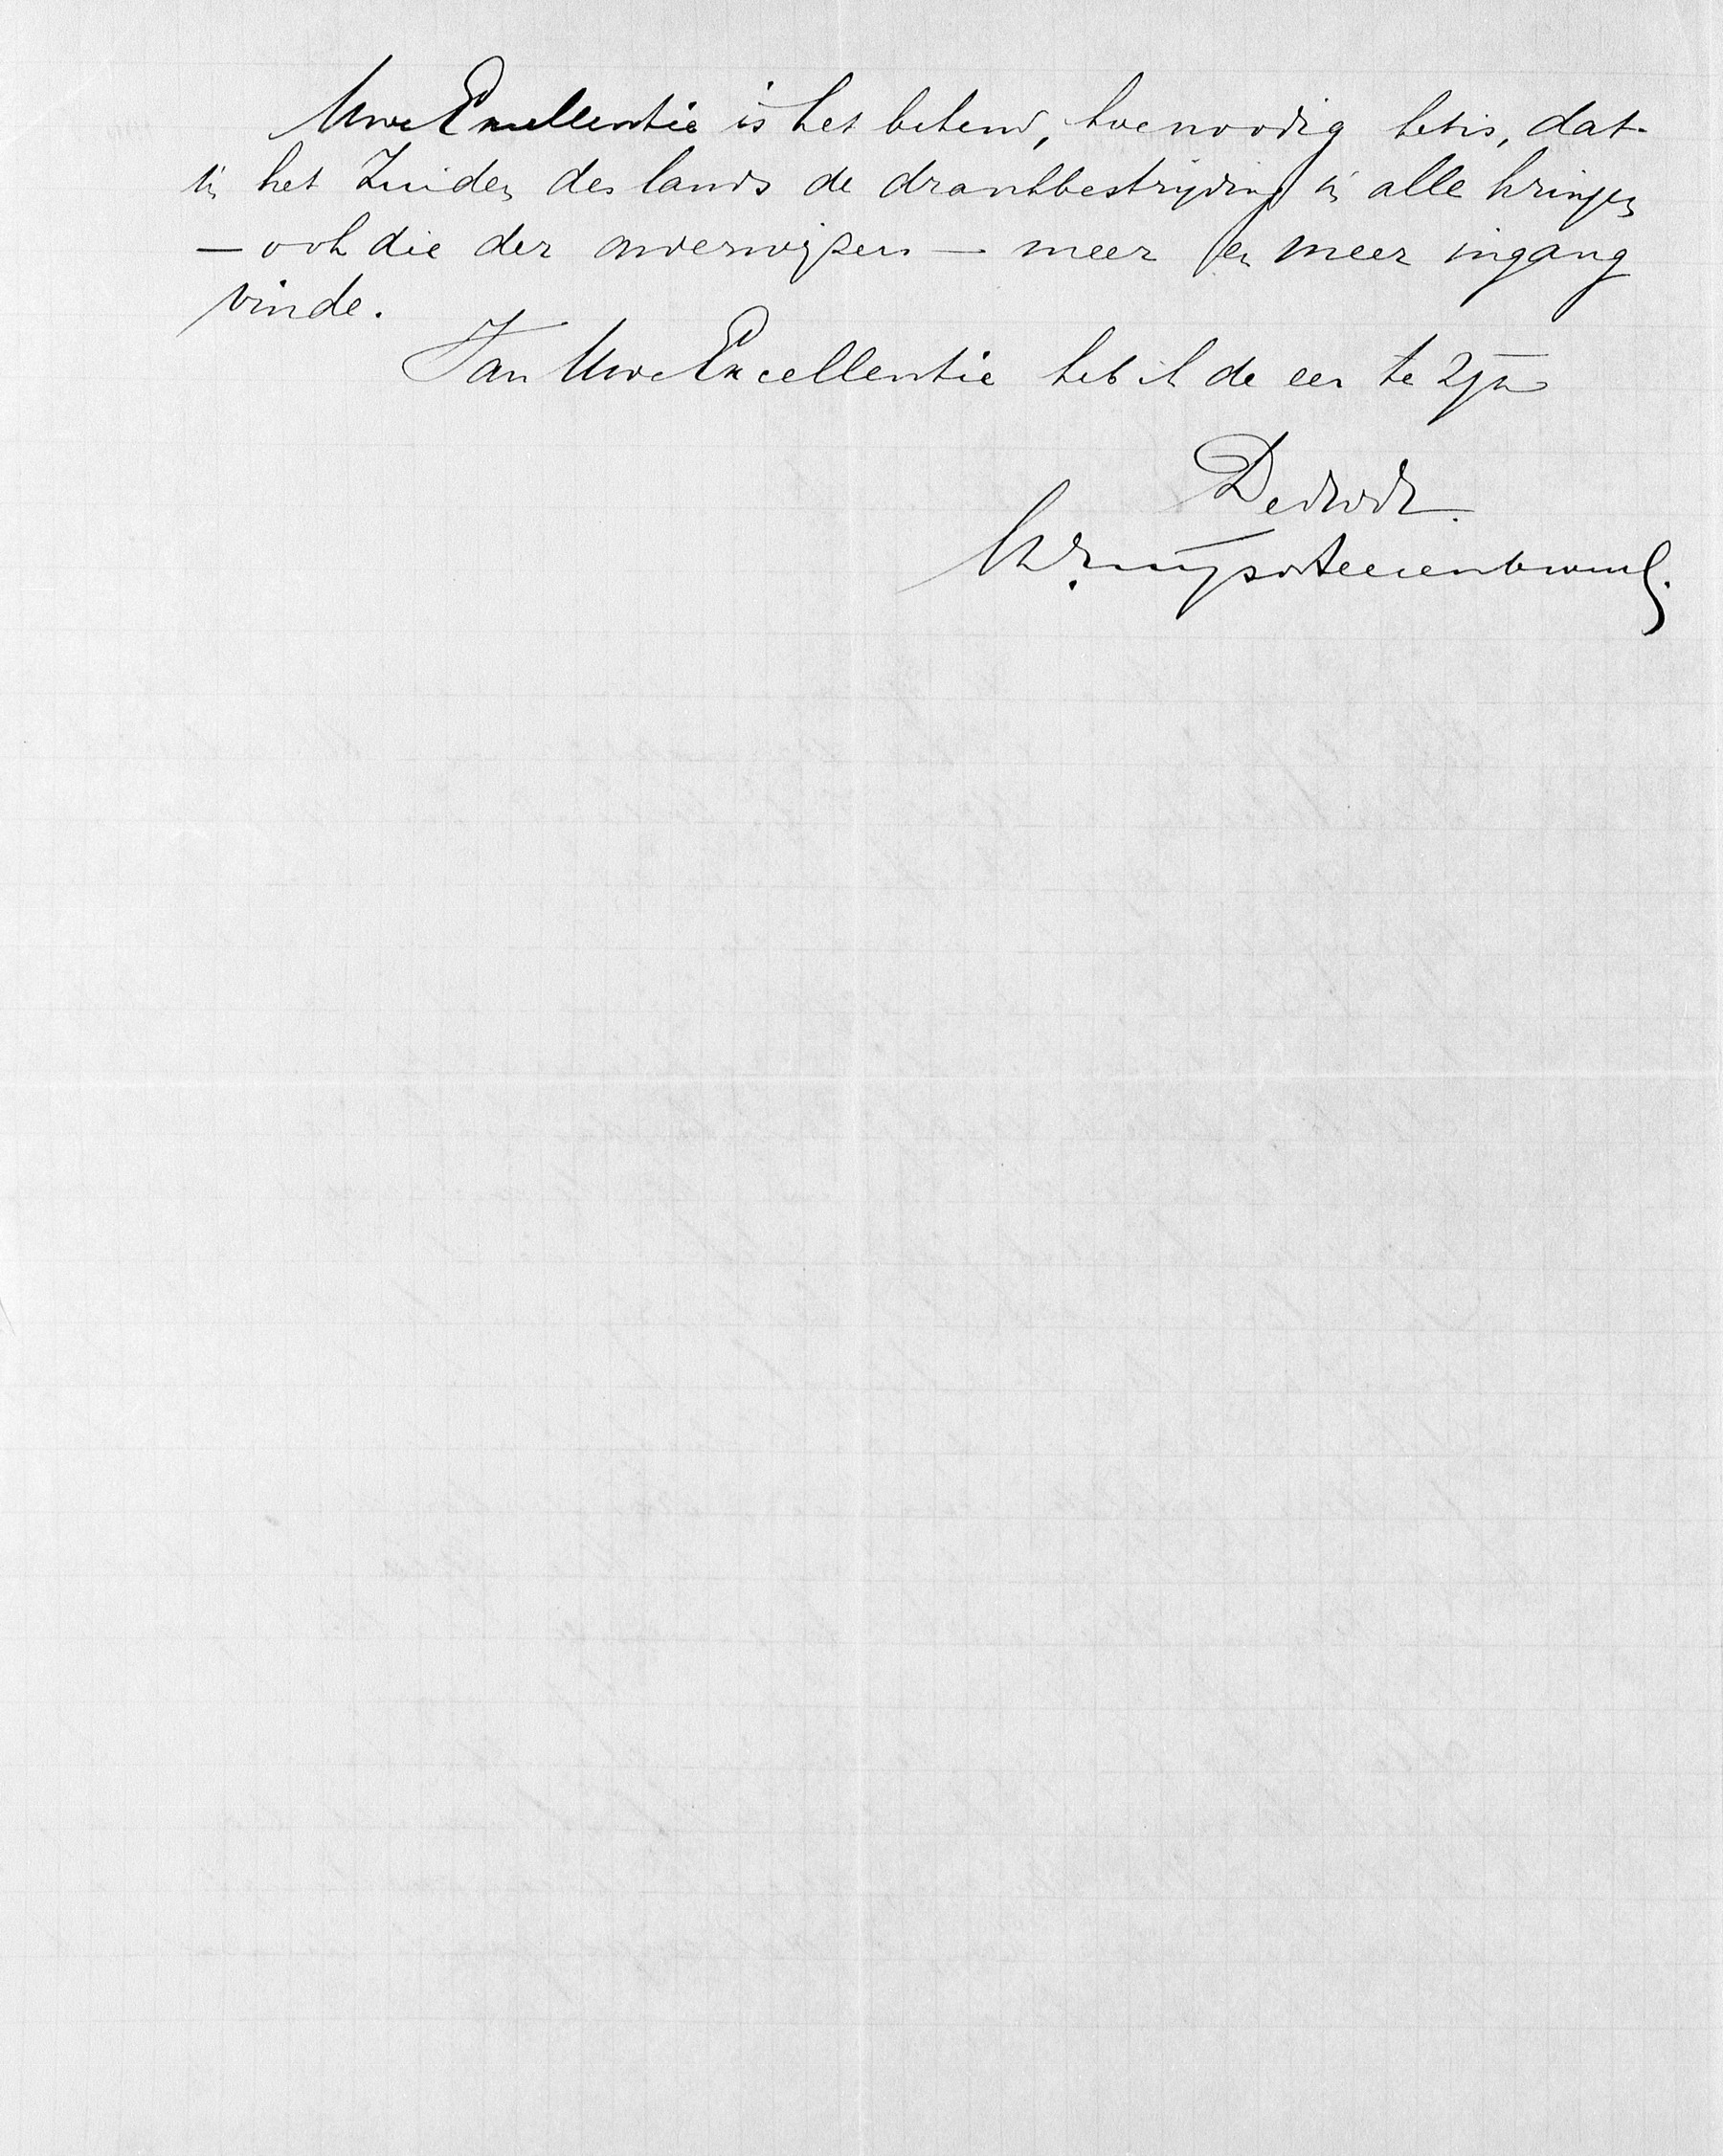 Uwe Excellentie is het bekend, hoe noodig het is, dat
in het Zuiden des lands de drankbestrijding in alle kringen
— ook die der onderwijzers — meer en meer ingang
vinde.
Van Uwe Excellentie heb ik de eer te zijn
De dw dr.
Ch. Ruys de Beerenbrouck.